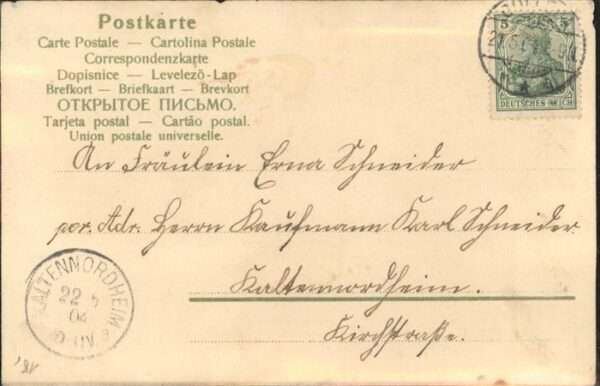 Postkarte
Carte Postale — Cartolina Postale
Correspondenzkarte
Dopisnice — Levelező-Lap
Brefkort — Briefkaart — Brevkort
ОТКРЫТОЕ ПИСЬМО.
Tarjeta postal — Cartão postal.
Union postale universelle.
5 5
DEUTSCHES REICH
An Fräulein Erna Schneider
per. Adr. Herrn Kaufmann Karl Schneider
Kaltennordheim.
Kirchstraße.
KALTENNORDHEIM
22 5
04